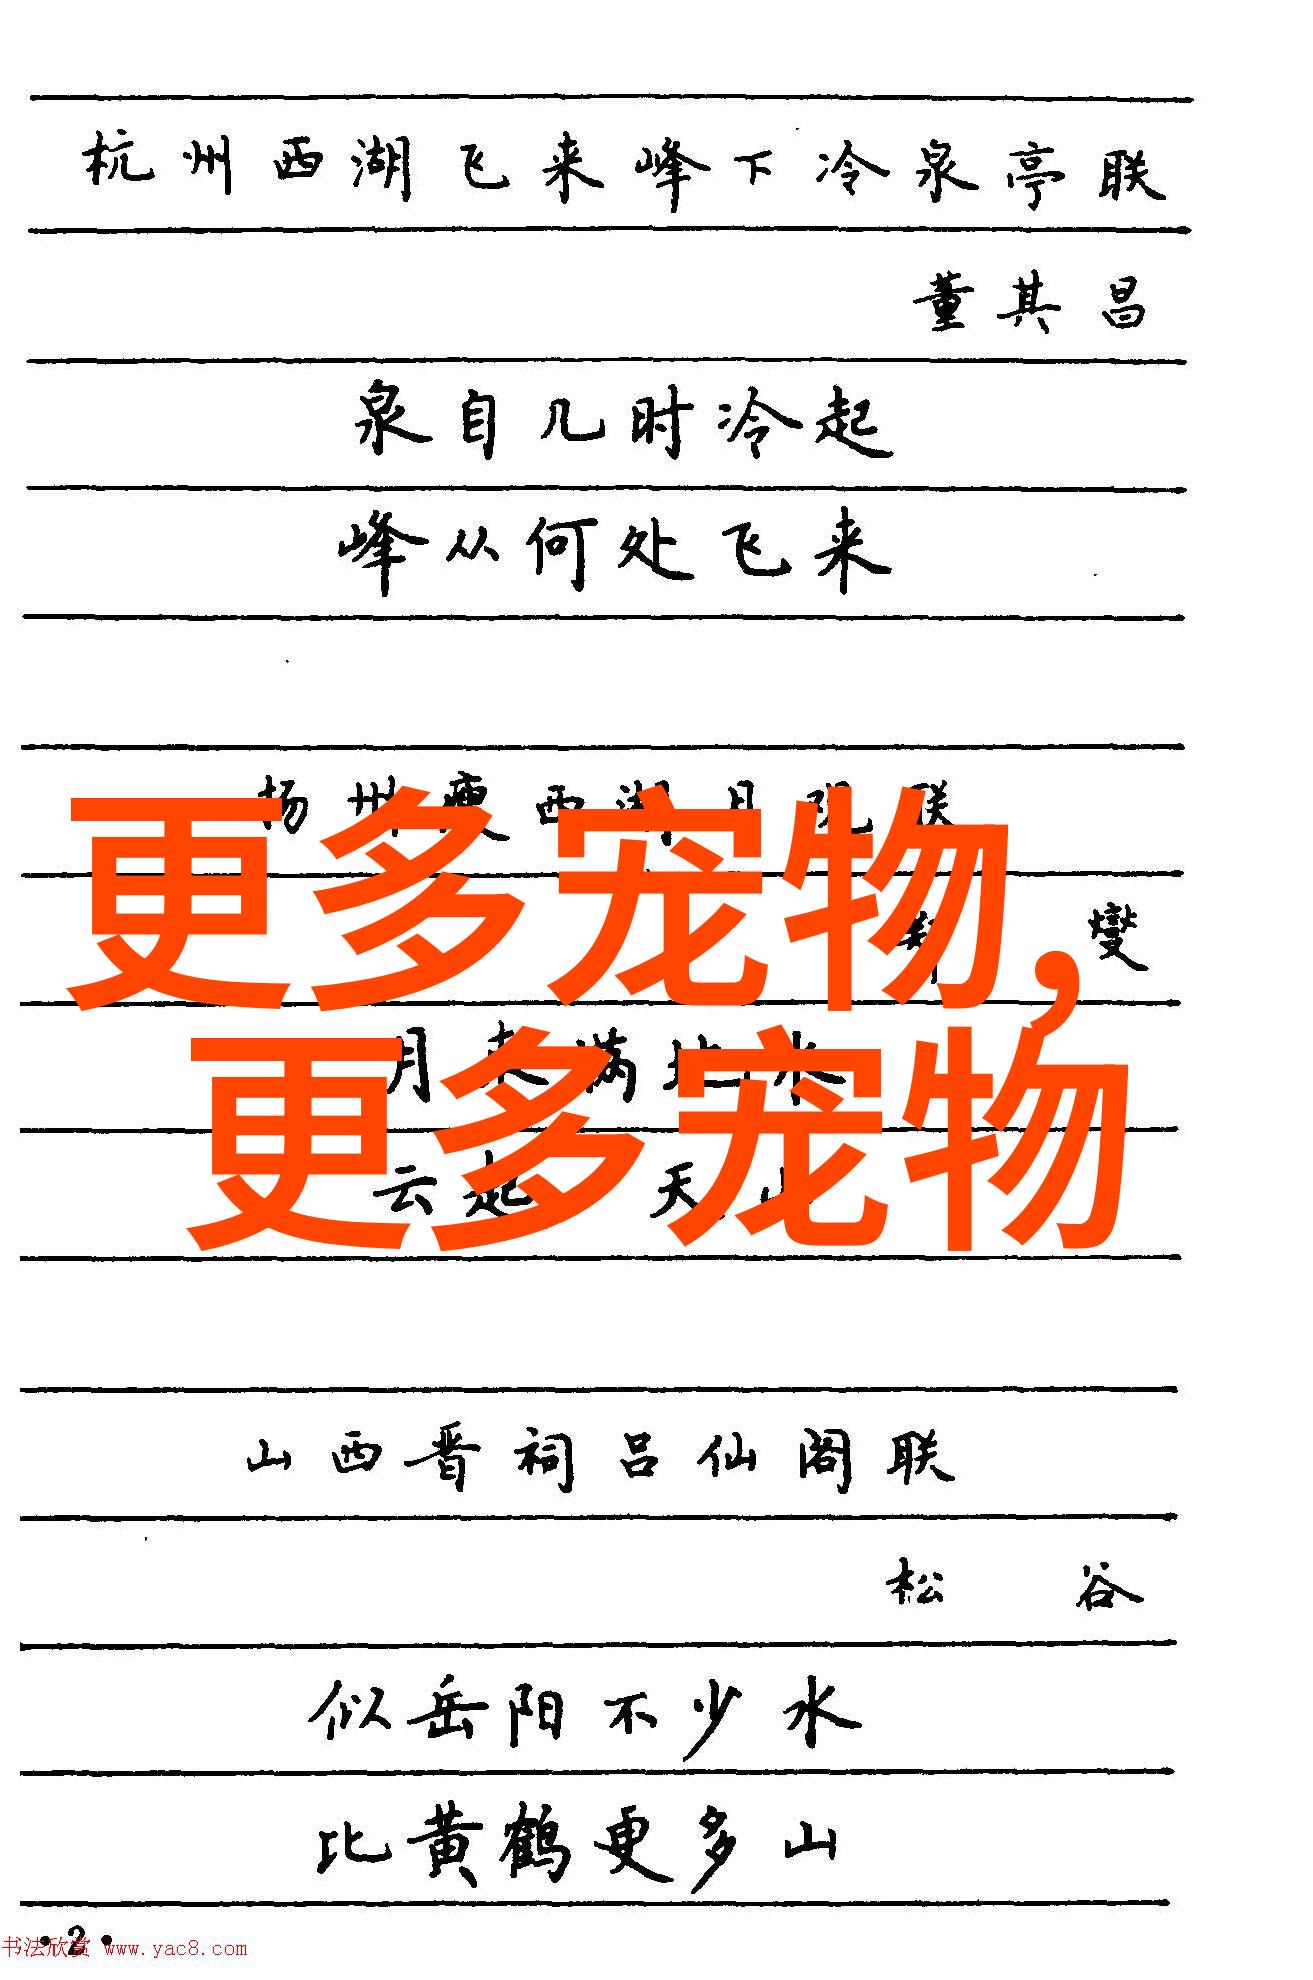 杭州西湖飞来峰下冷泉亭联
董其昌
泉自几时冷起
峰从何处飞来
扬州瘦西湖月观联
燮
更多宠物,
月来满地水
云起 天山
更多宠物
山西晋祠吕仙阁联
松谷
似岳阳不少水
比黄鹤更多山
·2·
书法欣赏 www.yac8.com